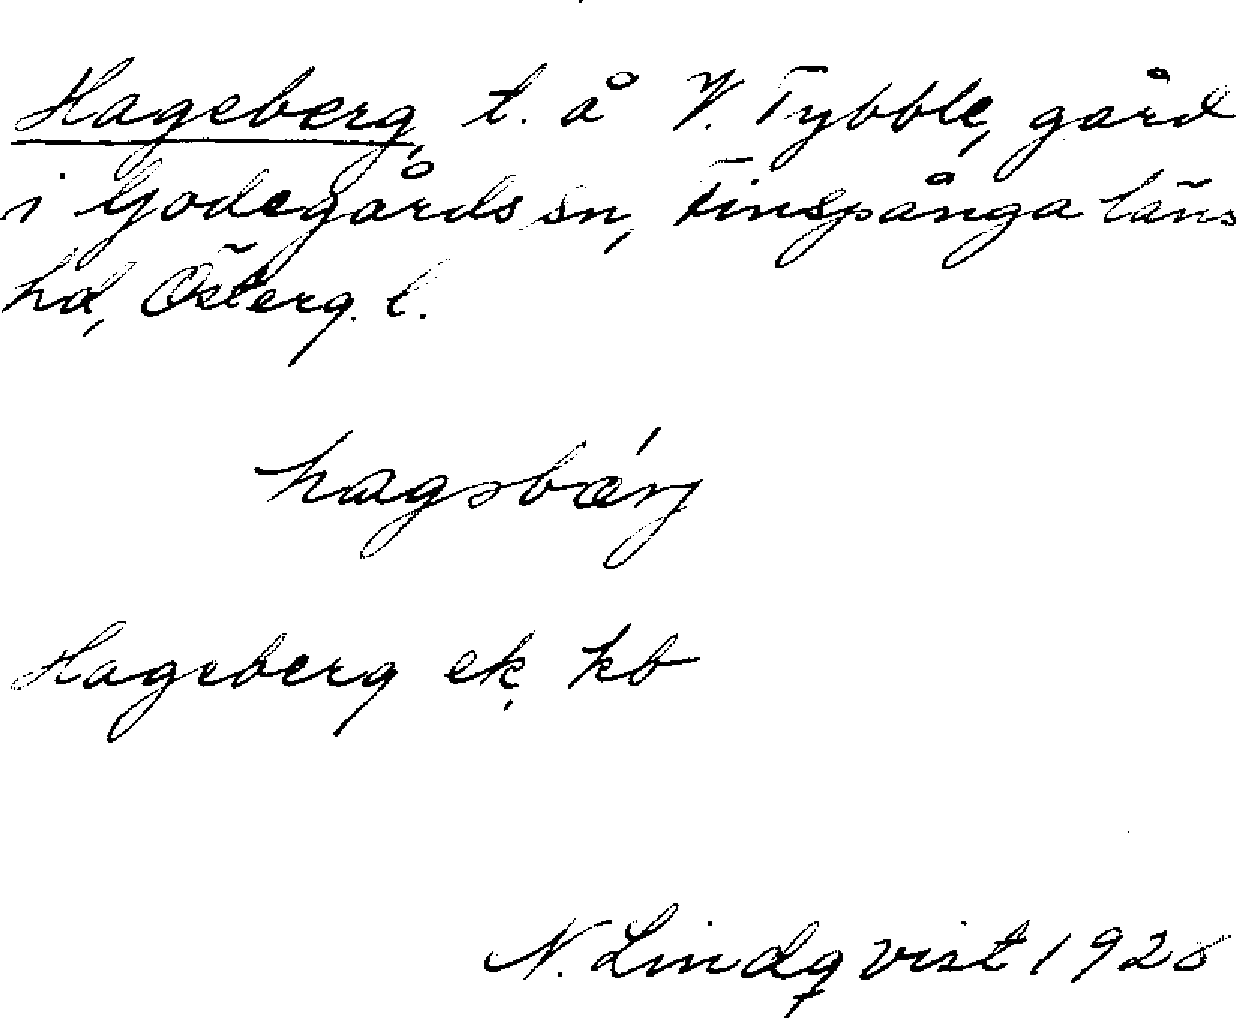 Hageberg, t. å V. Tybble, gård
i Godegårds sn, Finspånga läns
hd, Österg. l.
hagsbærj
Hageberg ek, kb
N. Lindqvist 1926